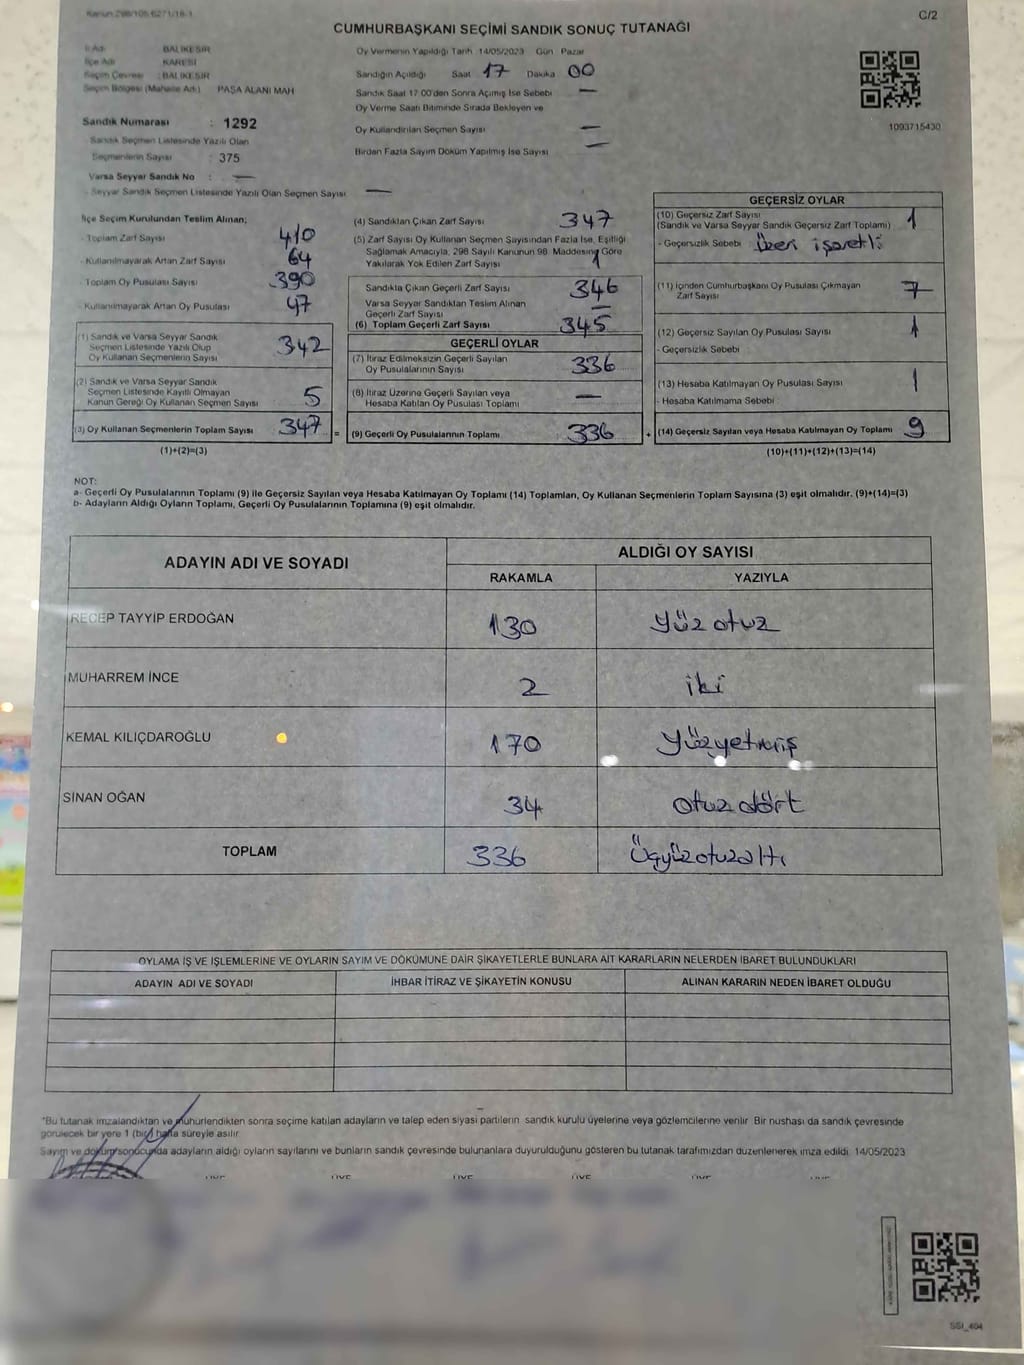 Kanun 298/105-6271/18-1
C/2
CUMHURBAŞKANI SEÇİMİ SANDIK SONUÇ TUTANAĞI
İl Adı BALIKESİR
İlçe Adı KARESİ
Seçim Çevresi : BALIKESİR
Seçim Bölgesi (Mahalle Adı) PAŞA ALANI MAH
Sandık Numarası : 1292
Sandık Seçmen Listesinde Yazılı Olan
Seçmenlerin Sayısı : 375
Varsa Seyyar Sandık No : —
- Seyyar Sandık Seçmen Listesinde Yazılı Olan Seçmen Sayısı —
Oy Vermenin Yapıldığı Tarih 14/05/2023 Gün Pazar
Sandığın Açıldığı Saat 17 Dakika 00
Sandık Saat 17:00'den Sonra Açılmış İse Sebebi —
Oy Verme Saati Bitiminde Sırada Bekleyen ve
Oy Kullandırılan Seçmen Sayısı —
Birden Fazla Sayım Döküm Yapılmış İse Sayısı —
1093715430
İlçe Seçim Kurulundan Teslim Alınan;
- Toplam Zarf Sayısı 410
- Kullanılmayarak Artan Zarf Sayısı 64
- Toplam Oy Pusulası Sayısı 390
- Kullanılmayarak Artan Oy Pusulası 47
(1) Sandık ve Varsa Seyyar Sandık
Seçmen Listesinde Yazılı Olup
Oy Kullanan Seçmenlerin Sayısı 342
(2) Sandık ve Varsa Seyyar Sandık
Seçmen Listesinde Kayıtlı Olmayan
Kanun Gereği Oy Kullanan Seçmen Sayısı 5
(3) Oy Kullanan Seçmenlerin Toplam Sayısı 347
(1)+(2)=(3)
(4) Sandıktan Çıkan Zarf Sayısı 347
(5) Zarf Sayısı Oy Kullanan Seçmen Sayısından Fazla İse, Eşitliği
Sağlamak Amacıyla, 298 Sayılı Kanunun 98. Maddesine Göre
Yakılarak Yok Edilen Zarf Sayısı 1
Sandıkta Çıkan Geçerli Zarf Sayısı 346
Varsa Seyyar Sandıktan Teslim Alınan
Geçerli Zarf Sayısı —
(6) Toplam Geçerli Zarf Sayısı 345
GEÇERLİ OYLAR
(7) İtiraz Edilmeksizin Geçerli Sayılan
Oy Pusulalarının Sayısı 336
(8) İtiraz Üzerine Geçerli Sayılan veya
Hesaba Katılan Oy Pusulası Toplamı —
= (9) Geçerli Oy Pusulalarının Toplamı 336 +
GEÇERSİZ OYLAR
(10) Geçersiz Zarf Sayısı
(Sandık ve Varsa Seyyar Sandık Geçersiz Zarf Toplamı) 1
- Geçersizlik Sebebi Üzeri işaretli
(11) İçinden Cumhurbaşkanı Oy Pusulası Çıkmayan
Zarf Sayısı 7
(12) Geçersiz Sayılan Oy Pusulası Sayısı 1
- Geçersizlik Sebebi
(13) Hesaba Katılmayan Oy Pusulası Sayısı 1
- Hesaba Katılmama Sebebi
(14) Geçersiz Sayılan veya Hesaba Katılmayan Oy Toplamı 9
(10)+(11)+(12)+(13)=(14)
NOT:
a- Geçerli Oy Pusulalarının Toplamı (9) ile Geçersiz Sayılan veya Hesaba Katılmayan Oy Toplamı (14) Toplamları, Oy Kullanan Seçmenlerin Toplam Sayısına (3) eşit olmalıdır. (9)+(14)=(3)
b- Adayların Aldığı Oyların Toplamı, Geçerli Oy Pusulalarının Toplamına (9) eşit olmalıdır.
ADAYIN ADI VE SOYADI
ALDIĞI OY SAYISI
RAKAMLA YAZIYLA
RECEP TAYYİP ERDOĞAN 130 Yüz otuz
MUHARREM İNCE 2 iki
KEMAL KILIÇDAROĞLU 170 Yüzyetmiş
SİNAN OĞAN 34 otuz dört
TOPLAM 336 Üçyüzotuzaltı
OYLAMA İŞ VE İŞLEMLERİNE VE OYLARIN SAYIM VE DÖKÜMÜNE DAİR ŞİKAYETLERLE BUNLARA AİT KARARLARIN NELERDEN İBARET BULUNDUKLARI
ADAYIN ADI VE SOYADI İHBAR İTİRAZ VE ŞİKAYETİN KONUSU ALINAN KARARIN NEDEN İBARET OLDUĞU
*Bu tutanak imzalandıktan ve mühürlendikten sonra seçime katılan adayların ve talep eden siyasi partilerin sandık kurulu üyelerine veya gözlemcilerine verilir. Bir nushası da sandık çevresinde
görülecek bir yere 1 (bir) hafta süreyle asılır.
Sayım ve döküm sonucunda adayların aldığı oyların sayılarını ve bunların sandık çevresinde bulunanlara duyurulduğunu gösteren bu tutanak tarafımızdan düzenlenerek imza edildi. 14/05/2023
SSI_404